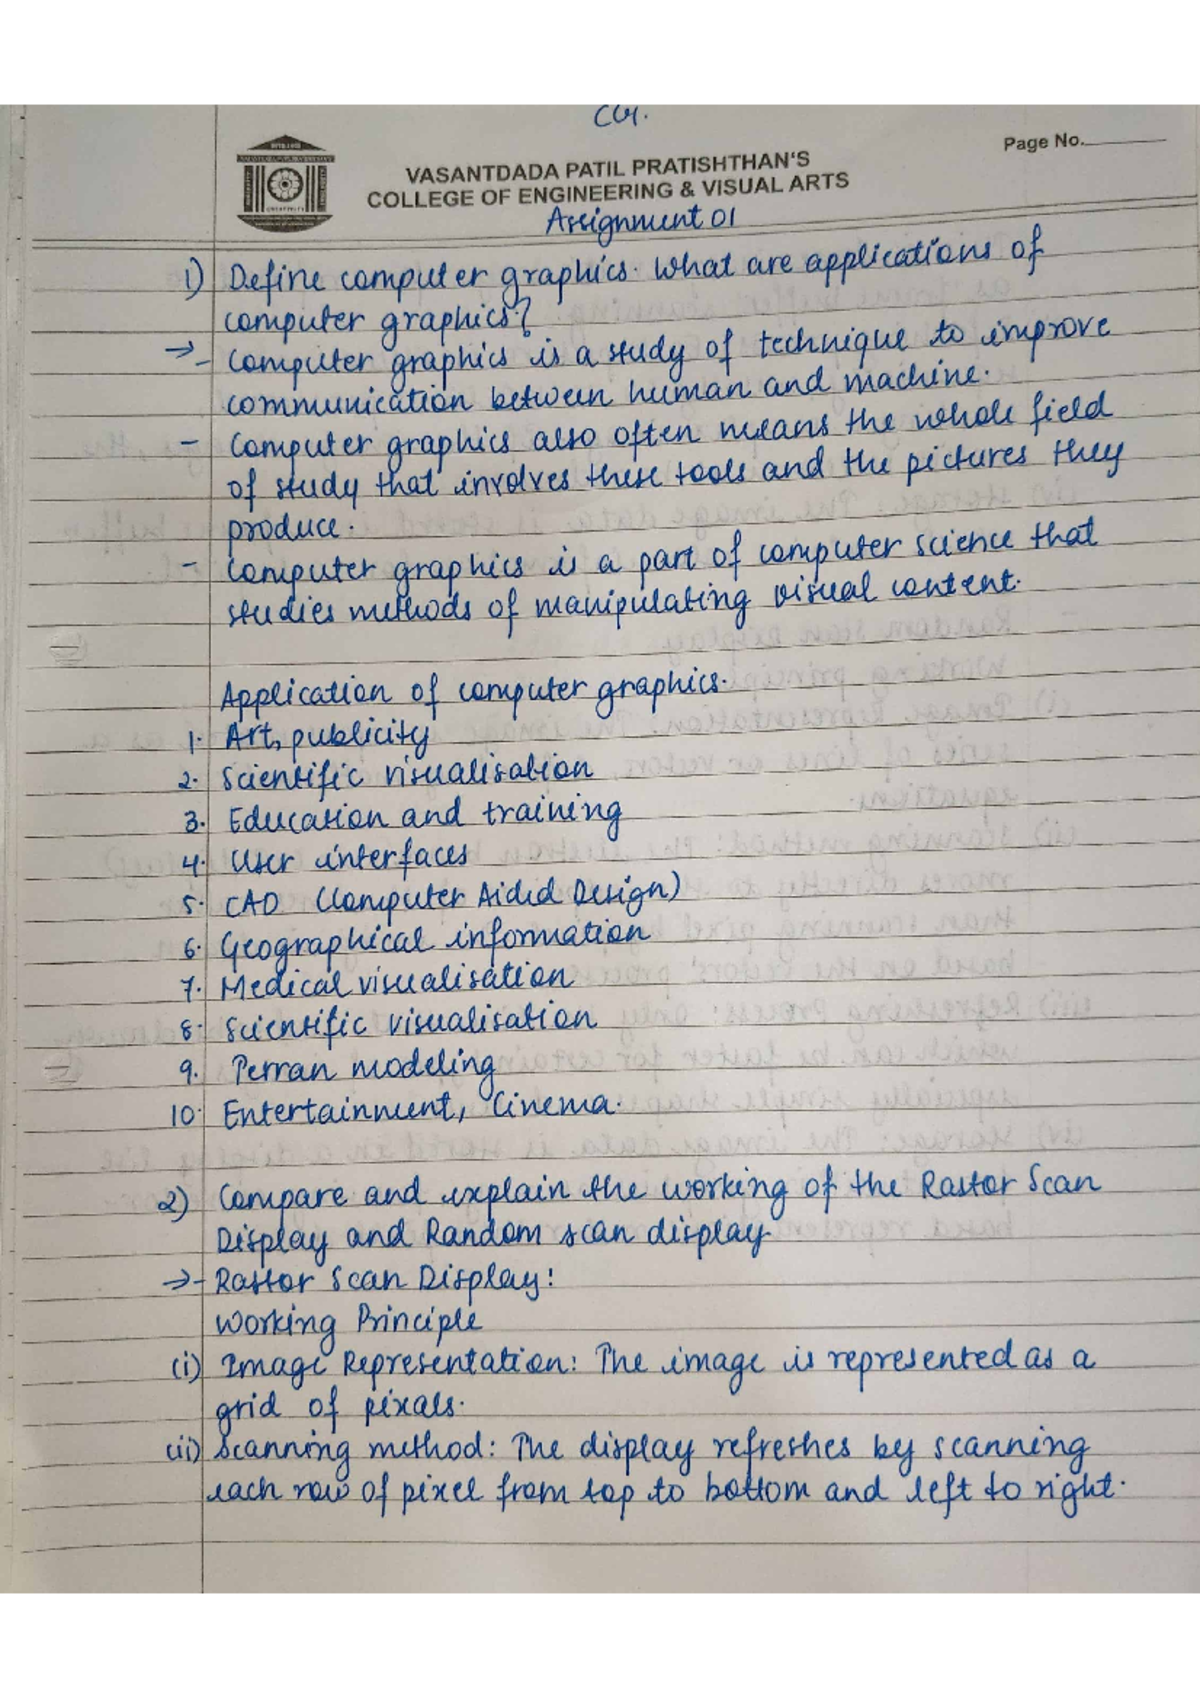 CG.
Page No.
VASANTDADA PATIL PRATISHTHAN'S
COLLEGE OF ENGINEERING & VISUAL ARTS
Assignment 01
1) Define computer graphics. What are applications of
computer graphics?
→ - Computer graphics is a study of technique to improve
communication between human and machine.
- Computer graphics also often means the whole field
of study that involves these tools and the pictures they
produce.
- Computer graphics is a part of computer science that
studies methods of manipulating visual content.
Application of computer graphics.
1. Art, publicity
2. Scientific visualisation
3. Education and training
4. User interfaces
5. CAD (Computer Aided Design)
6. Geographical information
7. Medical visualisation
8. Scientific visualisation
9. Perran modeling
10. Entertainment, Cinema.
2) Compare and explain the working of the Rastor Scan
Display and Random scan display.
→ - Rastor Scan Display:
Working Principle
(i) Image Representation: The image is represented as a
grid of pixals.
(ii) Scanning method: The display refreshes by scanning
each row of pixel from top to bottom and left to right.